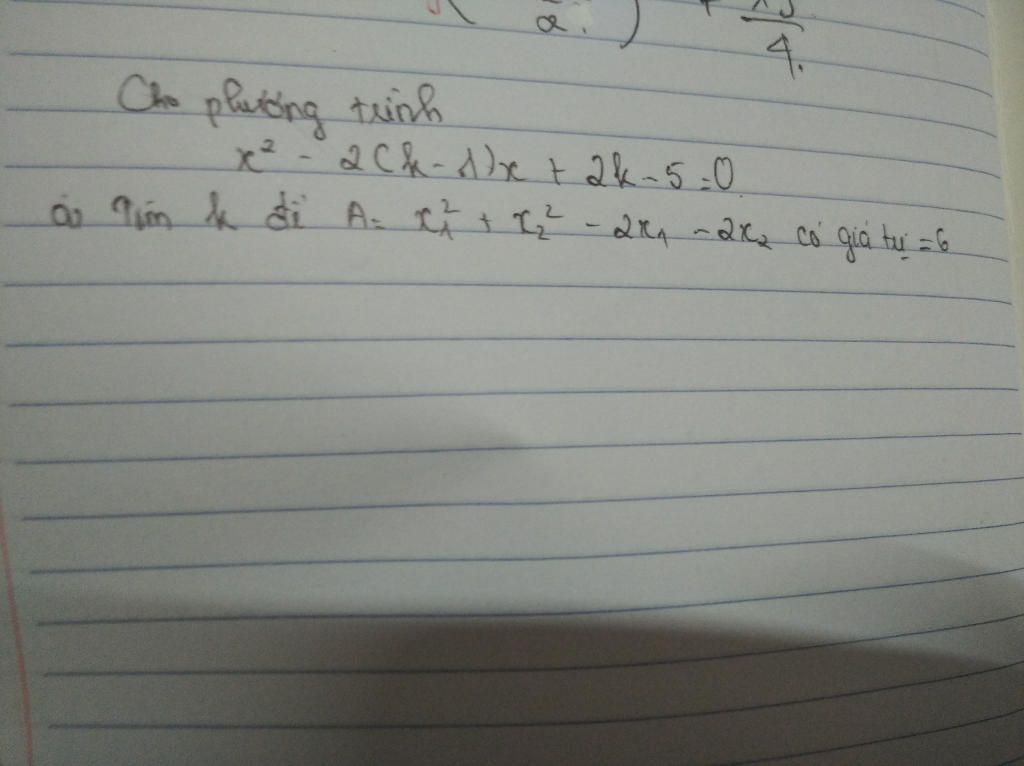 a.) + 
4.
Cho phương trình
x² - 2(k-1)x + 2k-5=0
a) Tìm k để A= x₁² + x₂² - 2x₁ - 2x₂ có giá trị =6